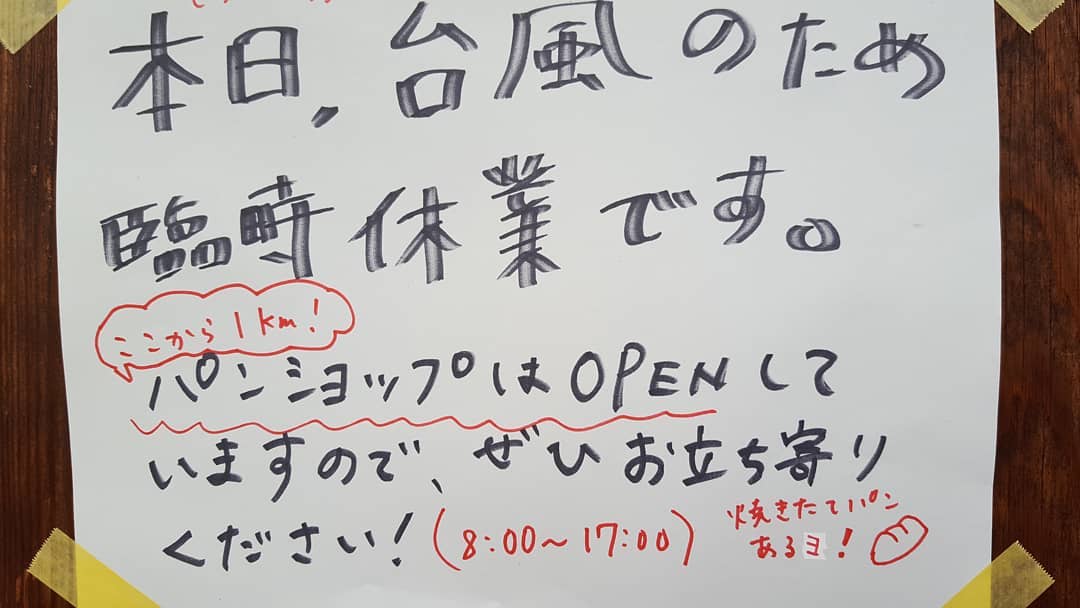 本日、台風のため
臨時休業です。
ここから1km!
パンショップはOPENして
いますので、ぜひお立ち寄り
ください!(8:00〜17:00)
焼きたてパン
あるヨ!